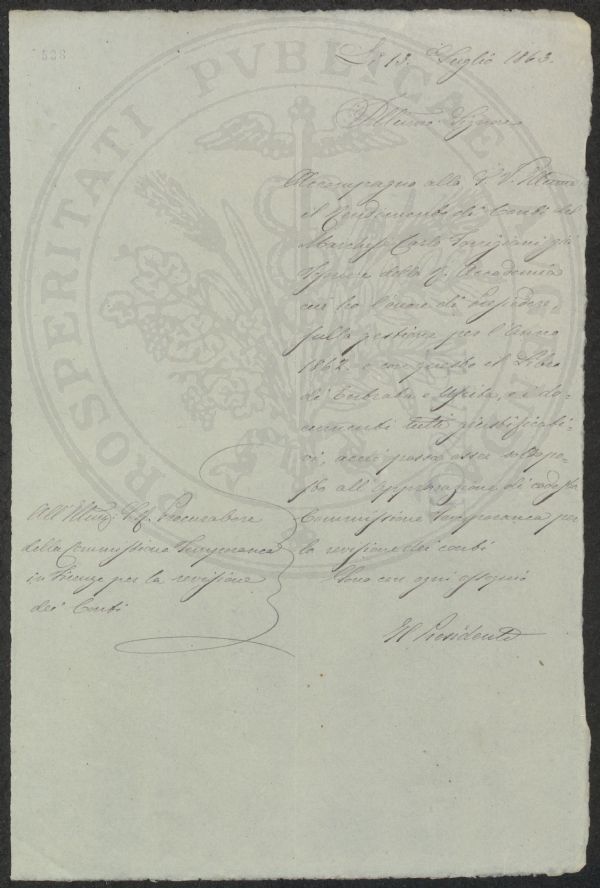 Li 13. Luglio 1863.
Illmo. Signore
Accompagno alla S. V. Illma
il rendimento di Conti del
Marchese Carlo Torrigiani già
della R. Accademia
cui ho l'onore di
sulla gestione per l'Anno
1862. e con questo il Libro
di Entrata e Uscita, e i do-
cumenti tutti giustificati-
vi, acciò possa esser sottopo-
sto all'approvazione di codesta
Commissione Temporanea per
la revisione dei conti
Sono con ogni ossequio
Il Presidente
All'Illmo. Procuratore
della Commissione Temporanea
in Firenze per la revisione
dei Conti
PROSPERITATI PVBLICAE